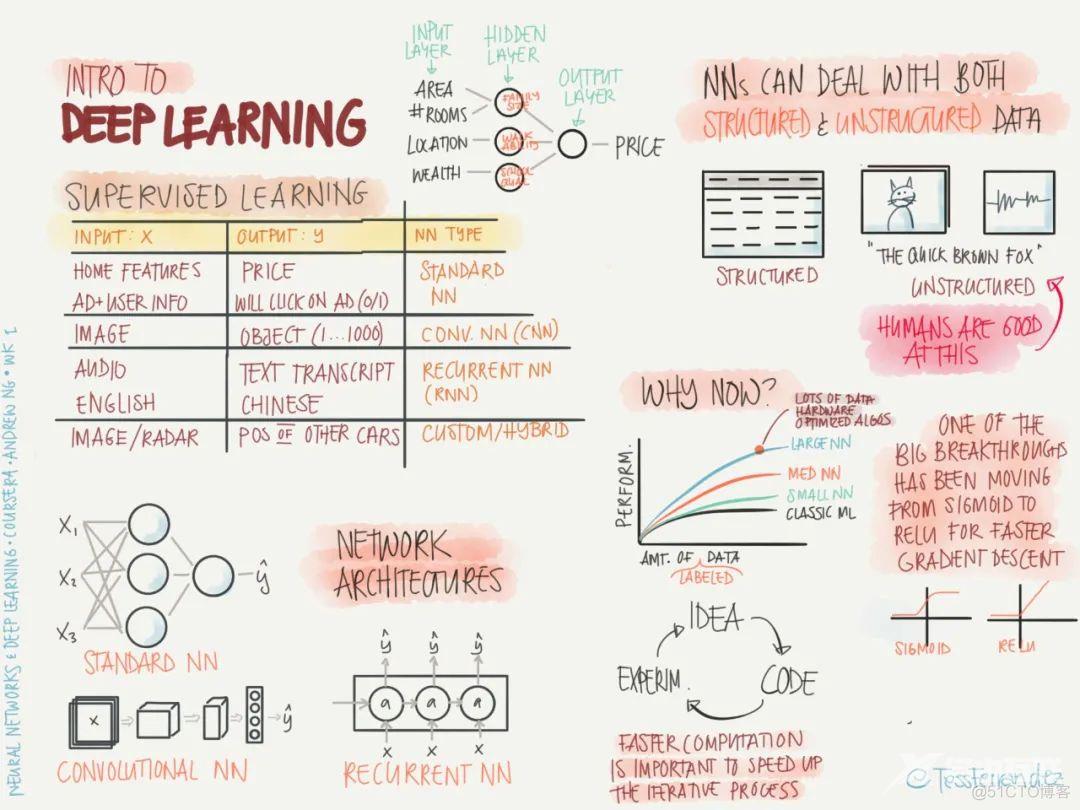 INTRO TO
DEEP LEARNING
INPUT LAYER
HIDDEN LAYER
OUTPUT LAYER
AREA
#ROOMS
LOCATION
WEALTH
FAMILY SIZE
WALK ABILITY
SCHOOL QUAL
PRICE
SUPERVISED LEARNING
INPUT: X OUTPUT: y NN TYPE
HOME FEATURES PRICE STANDARD
AD+USER INFO WILL CLICK ON AD (0/1) NN
IMAGE OBJECT (1...1000) CONV. NN (CNN)
AUDIO TEXT TRANSCRIPT RECURRENT NN
ENGLISH CHINESE (RNN)
IMAGE/RADAR POS OF OTHER CARS CUSTOM/HYBRID
NNs CAN DEAL WITH BOTH
STRUCTURED & UNSTRUCTURED DATA
STRUCTURED
"THE QUICK BROWN FOX"
UNSTRUCTURED
HUMANS ARE GOOD
AT THIS
WHY NOW?
LOTS OF DATA
HARDWARE
OPTIMIZED ALGOS
LARGE NN
MED NN
SMALL NN
CLASSIC ML
PERFORM.
AMT. OF DATA
LABELED
ONE OF THE
BIG BREAKTHROUGHS
HAS BEEN MOVING
FROM SIGMOID TO
RELU FOR FASTER
GRADIENT DESCENT
SIGMOID
RELU
IDEA
CODE
EXPERIM.
FASTER COMPUTATION
IS IMPORTANT TO SPEED UP
THE ITERATIVE PROCESS
NETWORK
ARCHITECTURES
X1
X2
X3
ŷ
STANDARD NN
X
ŷ
CONVOLUTIONAL NN
ŷ ŷ ŷ
a a a
X X X
RECURRENT NN
NEURAL NETWORKS & DEEP LEARNING · COURSERA · ANDREW NG · WK 1
@TessFerrandez
@51CTO博客